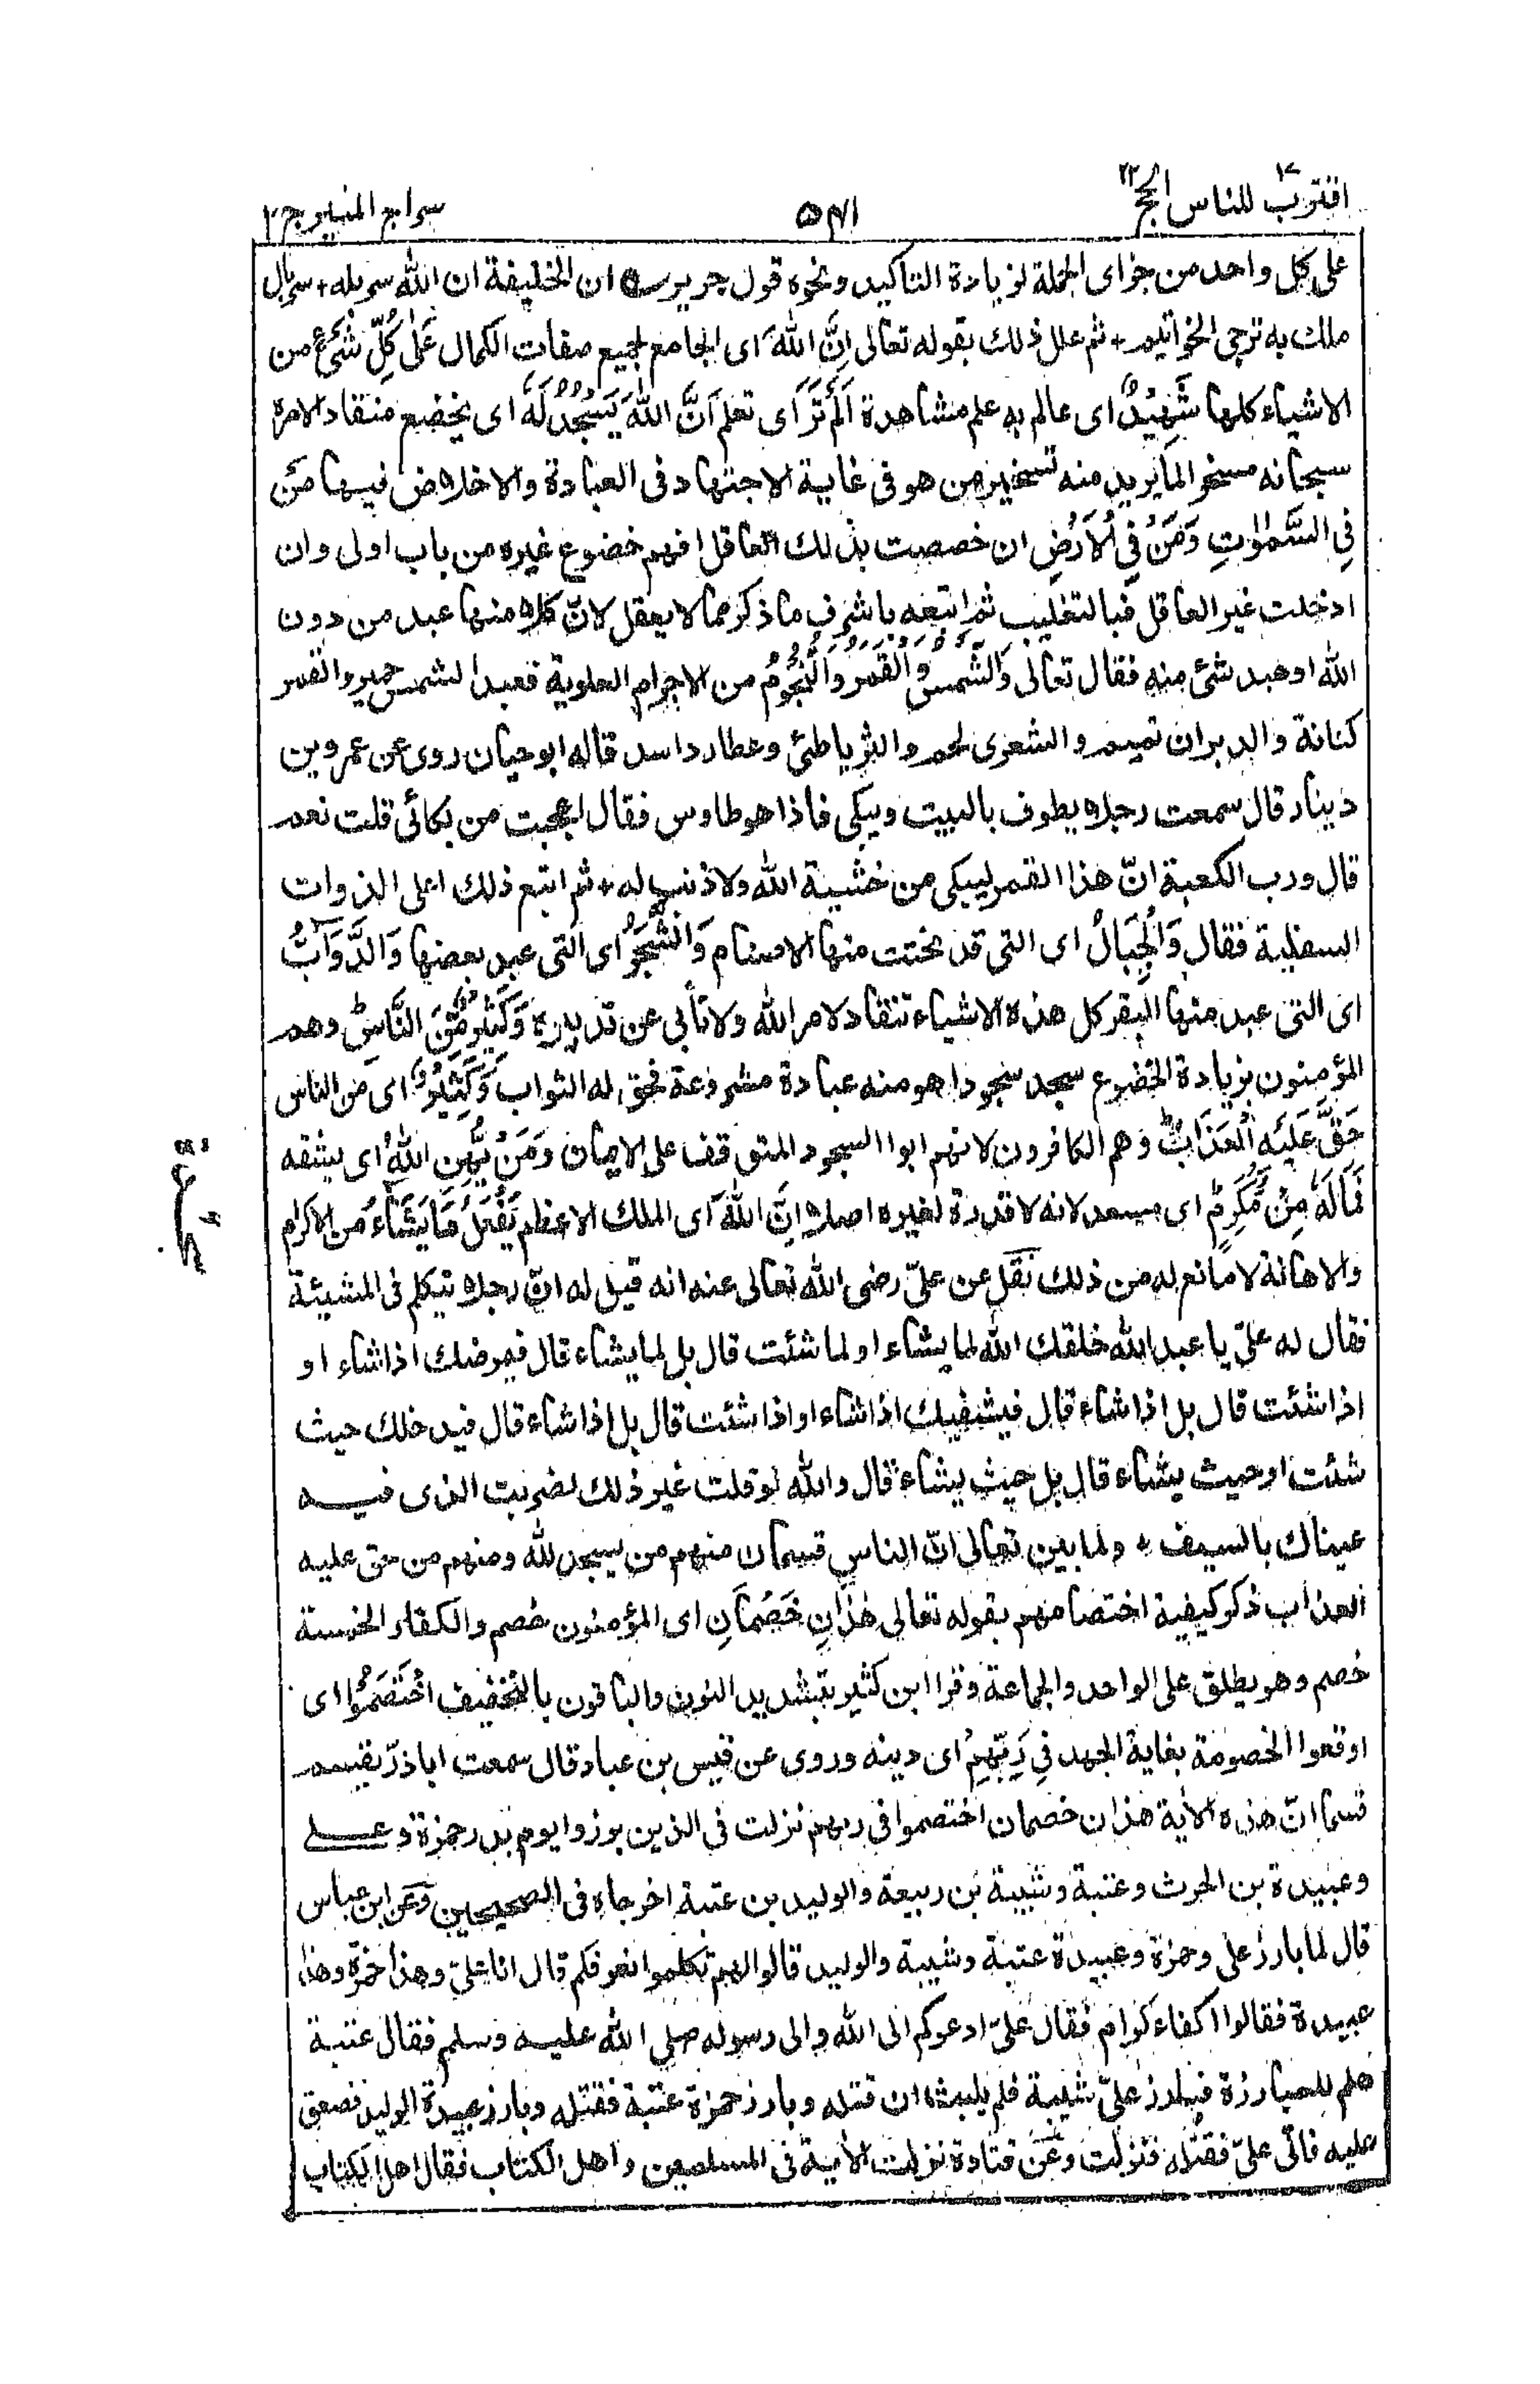 اقترب للناس ١٧ الحج ٢٢
٥٤١
سراج المنير ج ٢
على كل واحد من جزاى الجملة لزيادة التاكيد ونحوه قول جرير ان الخليفة ان الله سربله + سربال
ملك به ترجى الخواتيم + ثم علل ذلك بقوله تعالى اِنَّ اللهَ اى الجامع لجميع صفات الكمال عَلٰى كُلِّ شَيْءٍ من
الاشياء كلها شَهِيْدٌ اى عالم به علم مشاهدة اَلَمْ تَرَ اى تعلم اَنَّ اللهَ يَسْجُدُ لَهٗ اى يخضع منقاد الامره
سبحانه مسخر المايريد منه تسخير من هو فى غاية الاجتهاد فى العبادة والاخلاص فيها مَنْ
فِي السَّمٰوٰتِ وَمَنْ فِي الْاَرْضِ ان خصصت بذلك العاقل افهم خضوع غيره من باب اولى وان
ادخلت غير العاقل فبالتغليب ثم اتبعه باشرف ما ذكر مما لا يعقل لانّ كلا منها عبد من دون
الله او عبد شئ منه فقال تعالى وَالشَّمْسُ وَالْقَمَرُ وَالنُّجُوْمُ من الاجرام العلوية فعبد الشمس حمير والقمر
كنانة والدبران تميم والشعرى لخم والثريا طئ وعطارد اسد قاله ابو حيان روى عن عمرو بن
دينار قال سمعت رجلا يطوف بالبيت ويبكى فاذا هو طاوس فقال اعجبت من بكائى قلت نعم
قال ورب الكعبة انّ هذا القمر ليبكى من خشية الله ولا ذنب له + ثم اتبع ذلك اعلى الذوات
السفلية فقال وَالْجِبَالُ اى التى قد نحتت منها الاصنام وَالشَّجَرُ اى التى عبد بعضها وَالدَّوَآبُّ
اى التى عبد منها البقر كل هذه الاشياء تنقاد لامر الله ولا تأبى عن تدبيره وَكَثِيْرٌ مِّنَ النَّاسِ وهم
المؤمنون بزيادة الخضوع سجد سجودا هو منه عبادة مشروعة فحق له الثواب وَكَثِيْرٌ اى من الناس
حَقَّ عَلَيْهِ الْعَذَابُ وهم الكافرون لانهم ابوا السجود المتوقف على الايمان وَمَنْ يُّهِنِ اللهُ اى يشقه
فَمَا لَهٗ مِنْ مُّكْرِمٍ اى مسعد لانه لا قدرة لغيره اصلا اِنَّ اللهَ اى الملك الاعظم يَفْعَلُ مَا يَشَآءُ من الاكرام
والاهانة لا مانع له من ذلك نقل عن علىّ رضى الله تعالى عنه انه قيل له انّ رجلا يتكلم فى المشيئة
فقال له علىّ يا عبد الله خلقك الله لما يشاء او لما شئت قال بل لما يشاء قال فيمرضك اذا شاء او
اذا شئت قال بل اذا شاء قال فيشفيك اذا شاء او اذا شئت قال بل اذا شاء قال فيدخلك حيث
شئت او حيث يشاء قال بل حيث يشاء قال والله لو قلت غير ذلك لضربت الذى فيه
عيناك بالسيف + ولما بين تعالى انّ الناس قسمان منهم من يسجد لله ومنهم من حق عليه
العذاب ذكر كيفية اختصامهم بقوله تعالى هٰذٰنِ خَصْمَانِ اى المؤمنون خصم والكفار الخمسة
خصم وهو يطلق على الواحد والجماعة وقرا ابن كثير بتشديد النون والباقون بالتخفيف اخْتَصَمُوْا اى
اوقعوا الخصومة بغاية الجهد فِي رَبِّهِمْ اى دينه وروى عن قيس بن عباد قال سمعت اباذرّ يقسم
قسما انّ هذه الآية هذان خصمان اختصموا فى ربهم نزلت فى الذين برزوا يوم بدر حمزة وعلى
وعبيدة بن الحرث وعتبة وشيبة بن ربيعة والوليد بن عتبة اخرجاه فى الصحيحين وعن ابن عباس
قال لما بارز على وحمزة وعبيدة عتبة وشيبة والوليد قالوا لهم تكلموا نعرفكم قال انا علىّ وهذا حمزة وهذا
عبيدة فقالوا اكفاء كرام فقال علىّ ادعوكم الى الله والى رسوله صلى الله عليه وسلم فقال عتبة
هلم للمبارزة فبارز علىّ شيبة فلم يلبث ان قتله وبارز حمزة عتبة فقتله وبارز عبيدة الوليد فصعق
عليه فاتى علىّ فقتله فنزلت وعن قتادة نزلت الآية فى المسلمين واهل الكتاب فقال اهل الكتاب